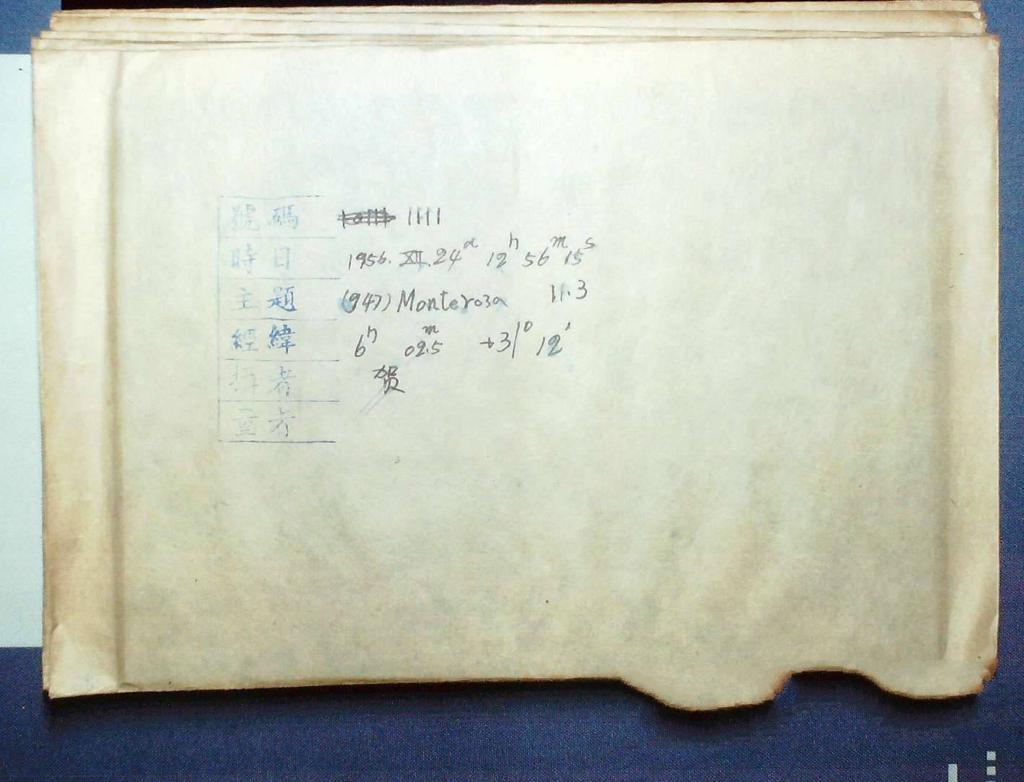 號碼 1111
時日 1956. XII. 24d 12h 56m 15s
主題 (947) Monterosa 11.3
經緯 6h 02.5m +31° 12'
者 贺